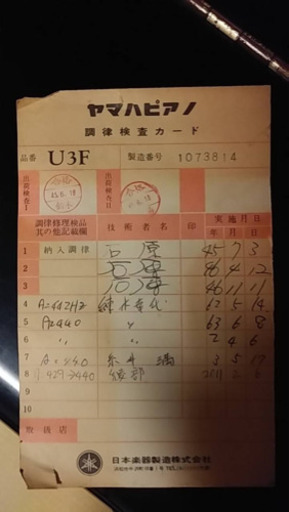 ヤマハピアノ
調律検査カード
品番 U3F 製造番号 1073814
出荷検査I 45.6.18 出荷検査II
調律修理検品其の他記載欄 技術者名 印 実施月日
1 納入調律 石原 45 7 3
2 46 4 12
3 46 11 11
4 A=442Hz 62 5 14
5 A=440 〃 63 6 8
6 〃 〃 2 4 6
7 A=440 3 5 17
8 綾部 2011 2
9
10
取扱店
日本楽器製造株式会社